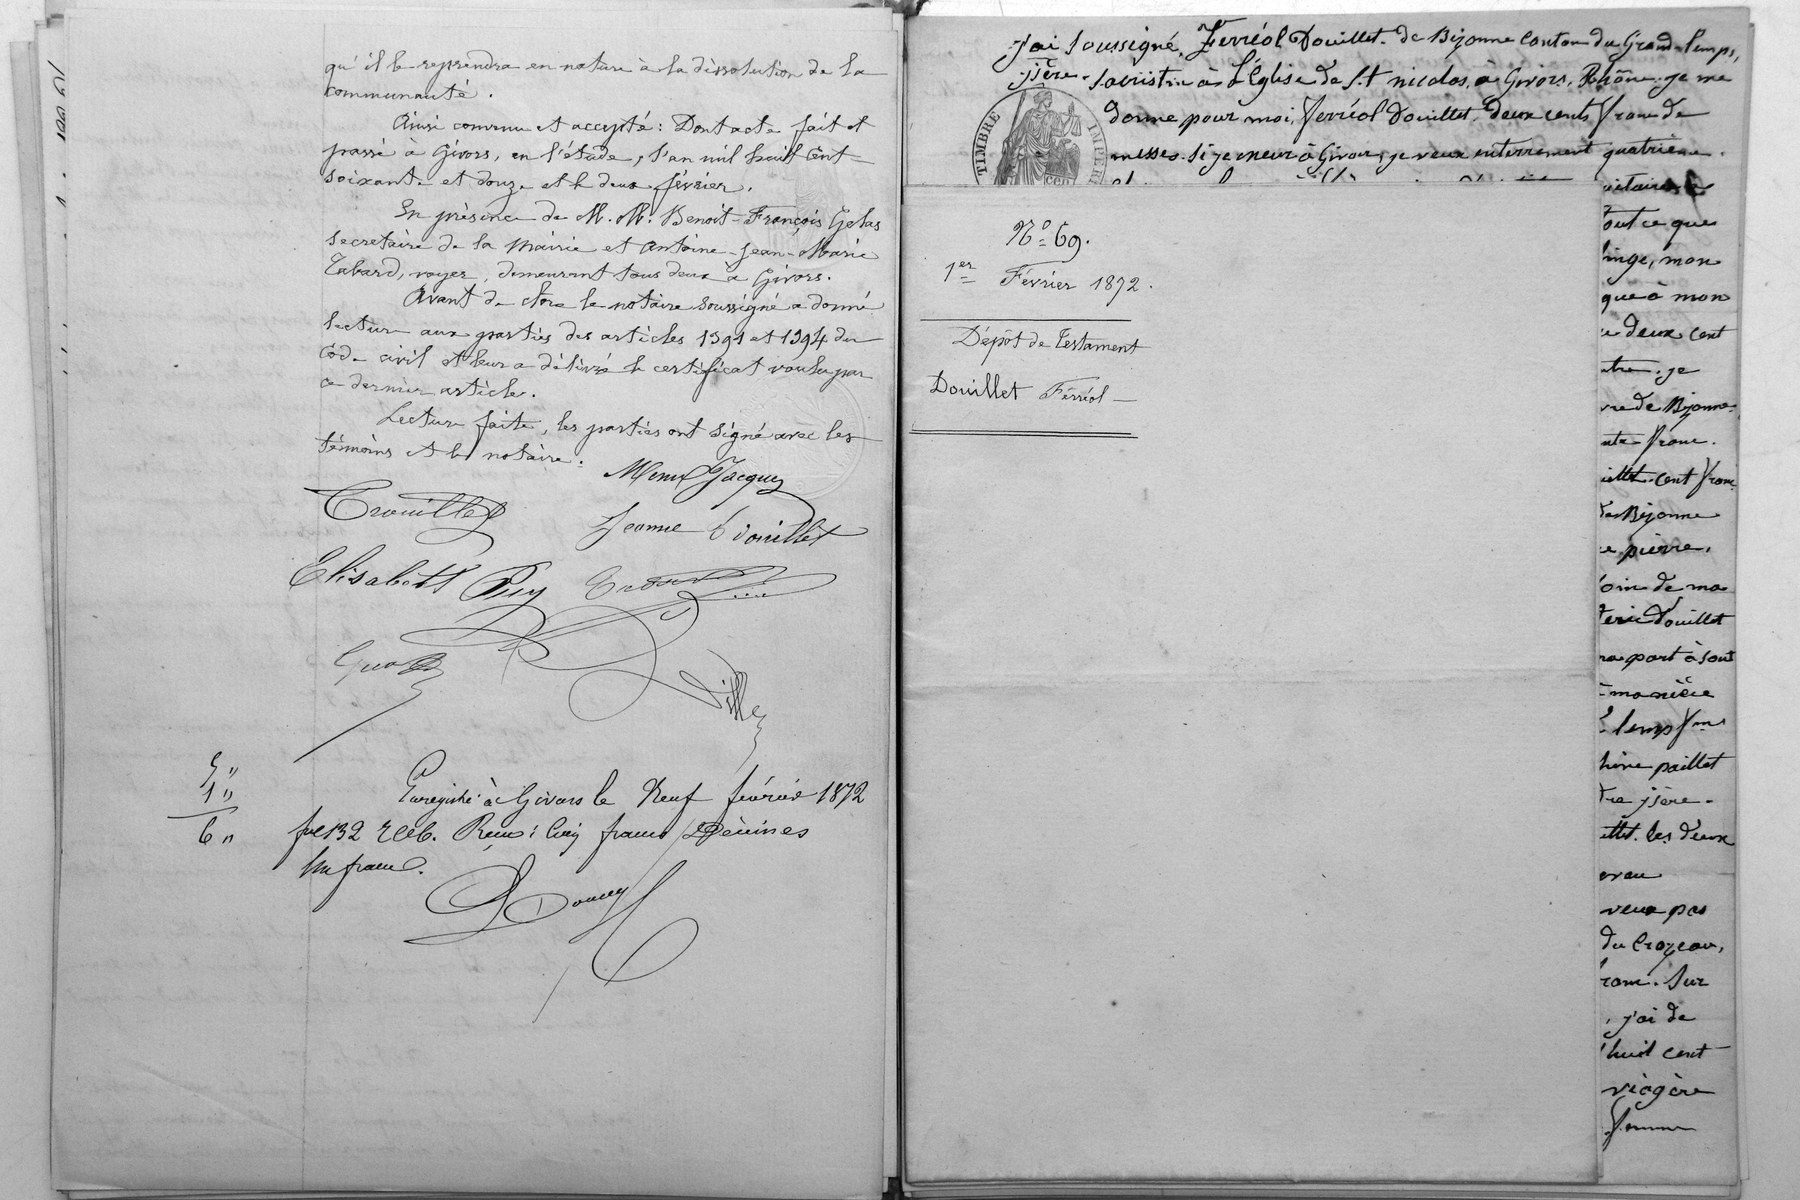 qu'il le reprendra en nature à la dissolution de la
communauté.
Ainsi convenu et accepté: Dont acte fait et
passé à Givors, en l'étude, l'an mil huit cent
soixante et douze et le deux février.
En présence de M. M. Benoit-François Gelas
secrétaire de la Mairie et Antoine-Jean-Marie
Tabard, voyer, demeurant tous deux à Givors.
Avant de clore le notaire soussigné a donné
lecture aux parties des articles 1391 et 1394 du
Code civil et leur a délivré le certificat voulu par
ce dernier article.
Lecture faite, les parties ont signé avec les
témoins et le notaire:
Jacques
Trouillet
Jeanne Trouillet
Elisabeth Puy
5 "
1 "
6 "
Enregistré à Givors le Neuf février 1872
fol 132 . Reçu: Cinq francs Décimes
Un franc.
J'ai soussigné, Ferréol Douillet de Bizonne canton du Grand-lemps,
jsère. sacristin à L'Église de S.t nicolas, à Givors, Rhône. je me
donne pour moi, Ferréol Douillet, deux cents franc de
messes. si je meur à Givors, je veux enterrement quatrième
TIMBRE IMPERI
N° 69.
1er Février 1872.
Dépôt de Testament
Douillet Férréol
tout ce que
linge, mon
que à mon
deux cent
je
de Bizonne
franc.
cent franc
de Bizonne
pierre,
soin de ma
Douillet
part à sont
ma nièce
lemps
paillet
jsère.
les deux
veux pas
du Crozeau,
franc. sur
, j'ai de
huit cent
viagère
femme